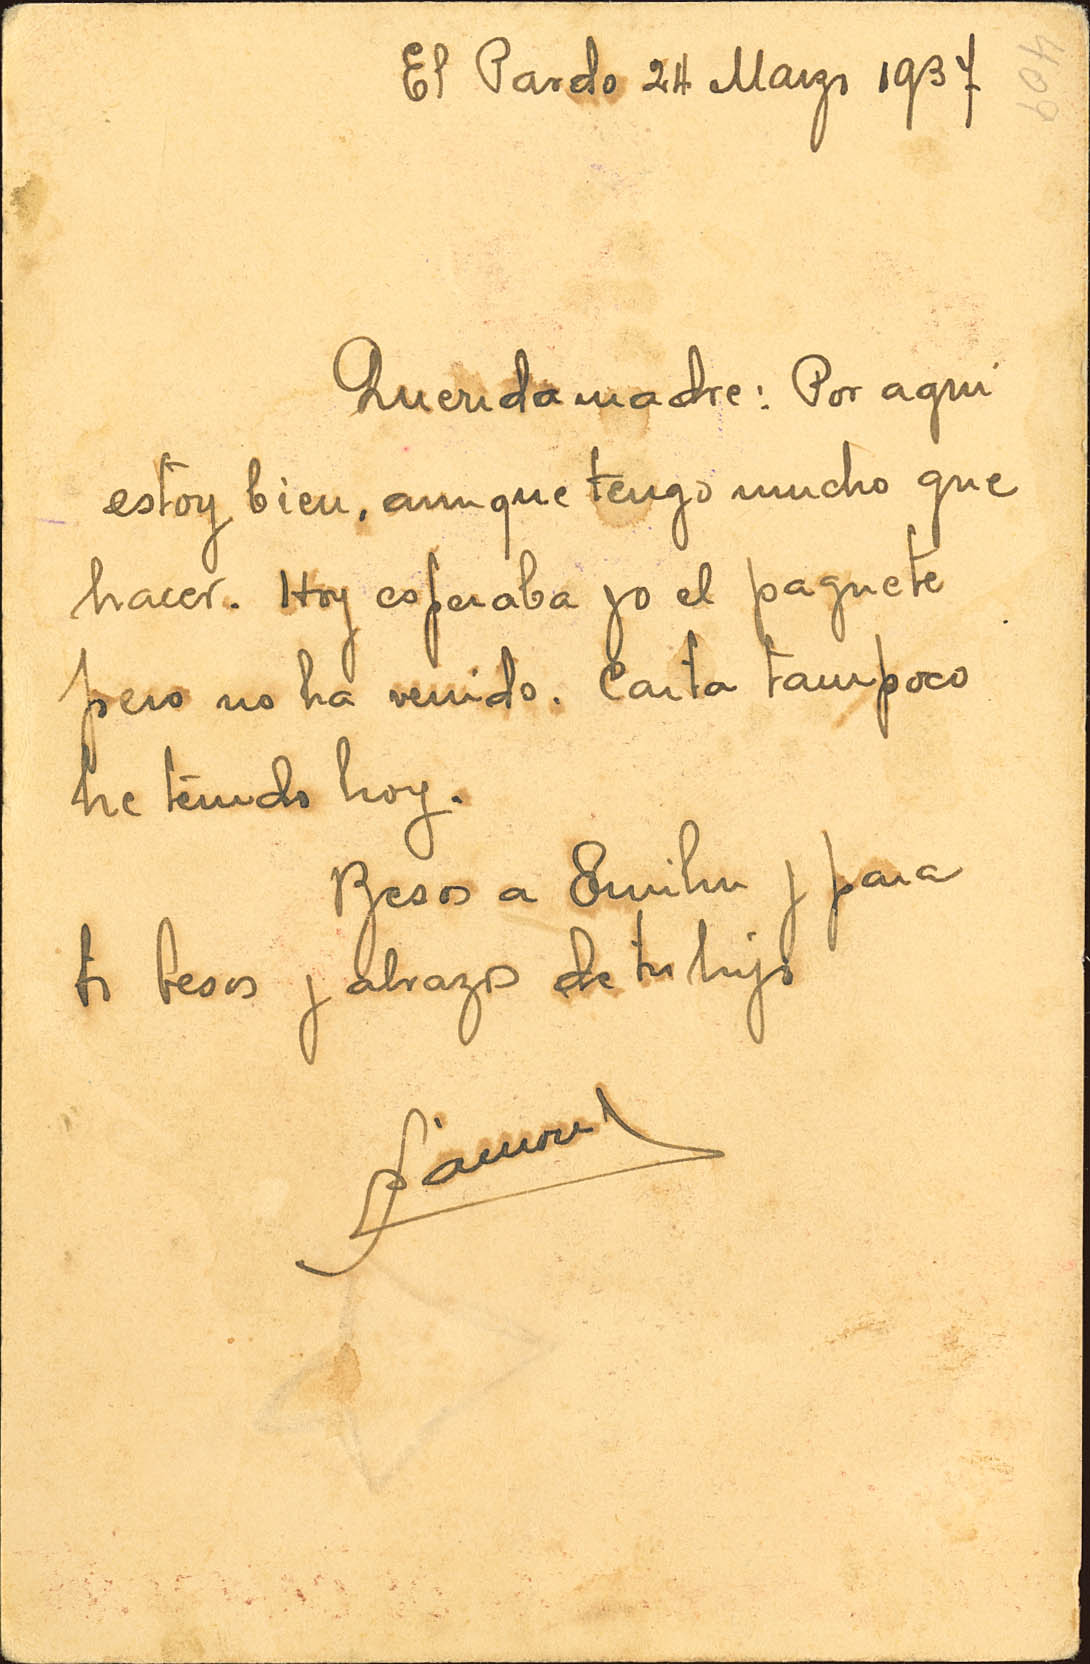 El Pardo 24 Marzo 1937
409
Querida madre: Por aqui
estoy bien, aunque tengo mucho que
hacer. Hoy esperaba yo el paquete
pero no ha venido. Carta tampoco
he tenido hoy.
Besos a y para
ti besos y abrazos de tu hijo